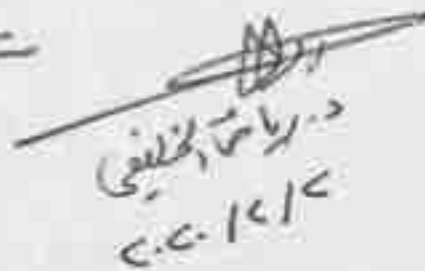 د. رياض الخليفي
٢٠٢٠/٢/٢